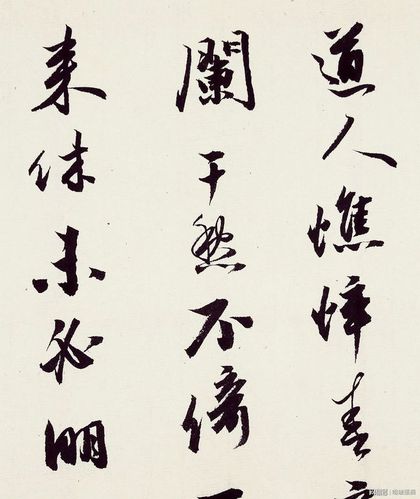 道人憔悴春
闌干愁不倚
来未必明